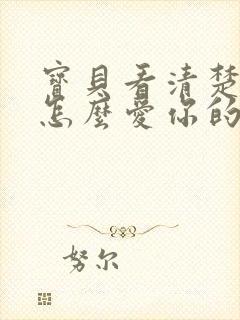 寶貝看清楚
怎麼愛你的
努尔